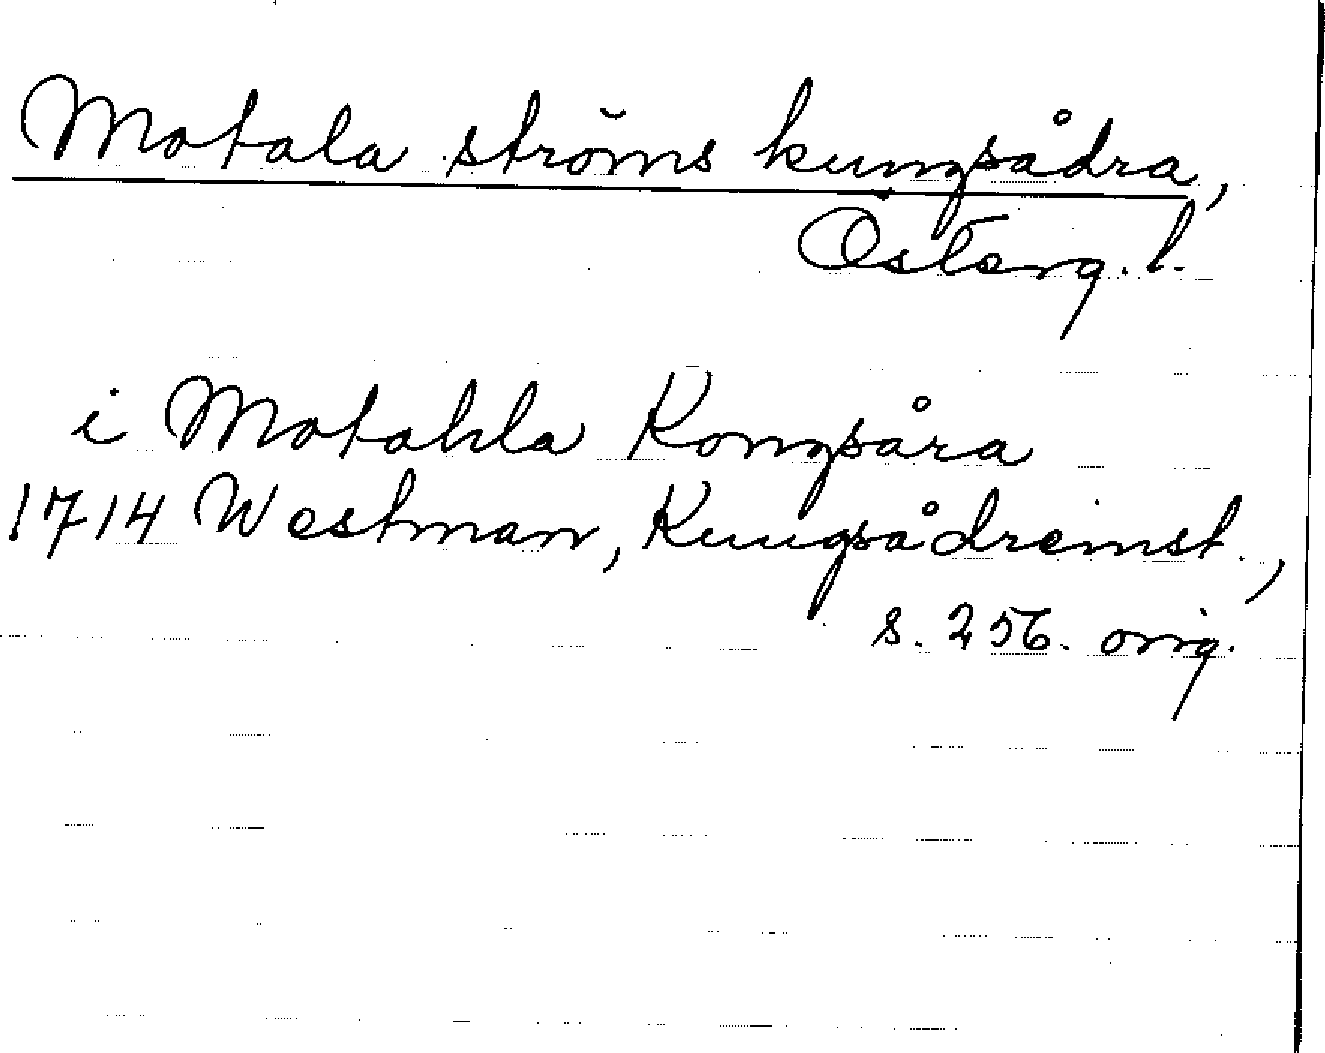 Motala ströms kungsådra,
Österg. l.
i Motahla Kongsåra
1714 Westman, Kungsådreinst.,
s. 256. orig.